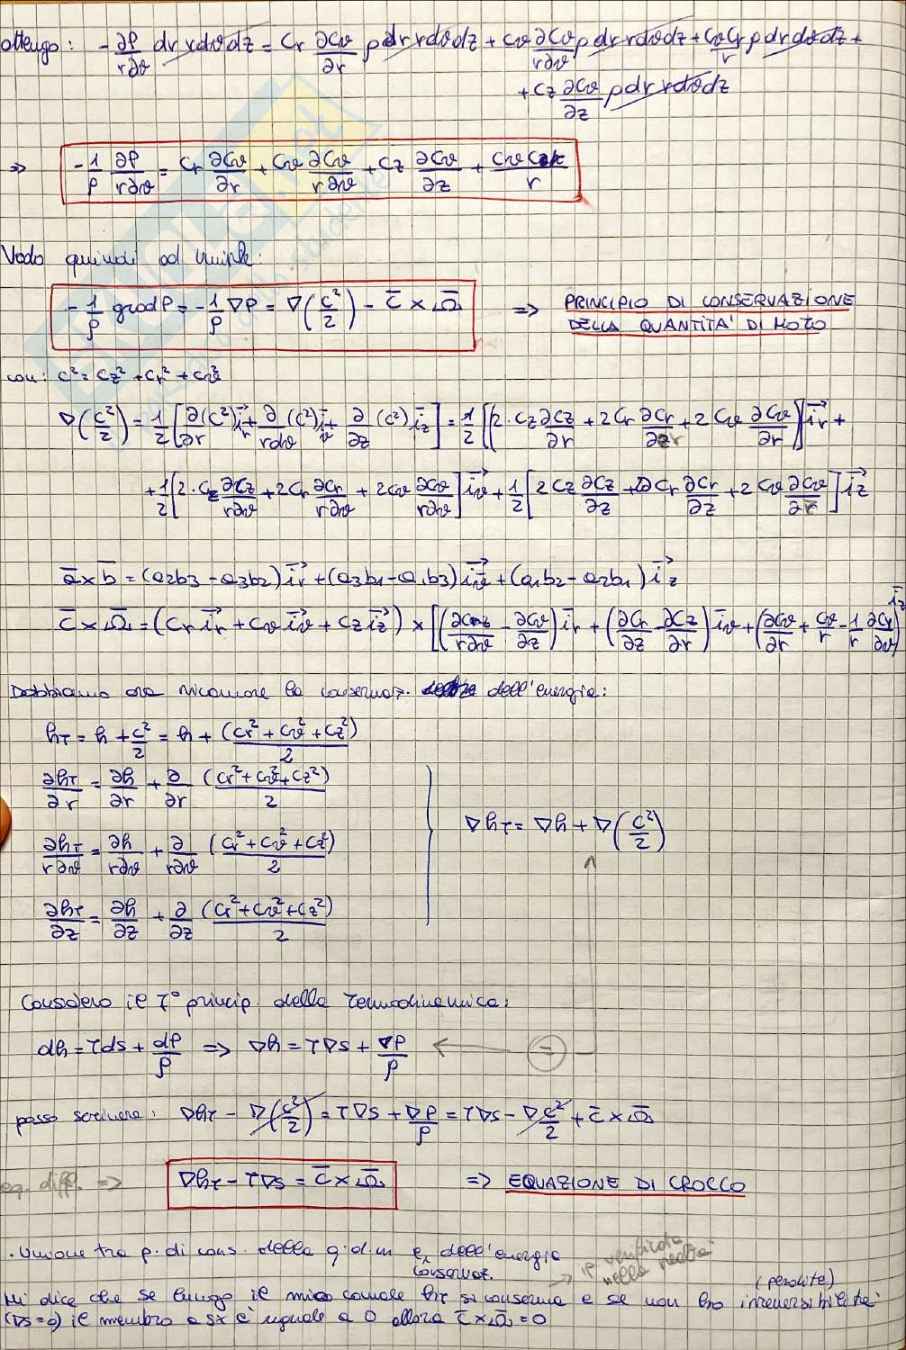 ottengo: -∂p/r∂θ dr rdθdz = Cr ∂Cθ/∂r ρ dr rdθdz + Cθ ∂Cθ/r∂θ ρ dr rdθdz + CθCr/r ρ dr dθdz +
+ Cz ∂Cθ/∂z ρ dr rdθdz
=> -1/ρ ∂p/r∂θ = Cr ∂Cθ/∂r + Cθ ∂Cθ/r∂θ + Cz ∂Cθ/∂z + Cθ Cr/r
Vado quindi ad unirle:
-1/ρ grad P = -1/ρ ∇P = ∇(c²/2) - c̄ × Ω̄ => PRINCIPIO DI CONSERVAZIONE
DELLA QUANTITA' DI MOTO
con: c² = Cz² + Cr² + Cθ²
∇(c²/2) = 1/2 [∂(c²)/∂r i⃗r + ∂/r∂θ (c²) i⃗θ + ∂/∂z (c²) i⃗z] = 1/2 [2·Cz ∂Cz/∂r + 2Cr ∂Cr/∂r + 2Cθ ∂Cθ/∂r] i⃗r +
+ 1/2 [2·Cz ∂Cz/r∂θ + 2Cr ∂Cr/r∂θ + 2Cθ ∂Cθ/r∂θ] i⃗θ + 1/2 [2Cz ∂Cz/∂z + 2Cr ∂Cr/∂z + 2Cθ ∂Cθ/∂z] i⃗z
ā × b̄ = (a2b3 - a3b2) i⃗r + (a3b1 - a1b3) i⃗θ + (a1b2 - a2b1) i⃗z
c̄ × Ω̄ = (Cr i⃗r + Cθ i⃗θ + Cz i⃗z) × [(∂Cz/r∂θ - ∂Cθ/∂z) i⃗r + (∂Cr/∂z - ∂Cz/∂r) i⃗θ + (∂Cθ/∂r + Cθ/r - 1/r ∂Cr/∂θ) i⃗z
Dobbiamo ora ricavare la conservaz. dell'energia:
hT = h + c²/2 = h + (Cr² + Cθ² + Cz²)/2
∂hT/∂r = ∂h/∂r + ∂/∂r (Cr² + Cθ² + Cz²)/2
∂hT/r∂θ = ∂h/r∂θ + ∂/r∂θ (Cr² + Cθ² + Cz²)/2
∇hT = ∇h + ∇(c²/2)
∂hT/∂z = ∂h/∂z + ∂/∂z (Cr² + Cθ² + Cz²)/2
Considero il I° princip. della termodinamica:
dh = Tds + dP/ρ => ∇h = T∇s + ∇P/ρ ← (-)
posso scrivere: ∇hT - ∇(c²/2) = T∇s + ∇P/ρ = T∇s - ∇c²/2 + c̄ × Ω̄
eq. diff. => ∇hT - T∇s = c̄ × Ω̄ => EQUAZIONE DI CROCCO
. Unione tra p. di cons. della q.d.m e dell'energia
conservaz.
nella realtà
(perdite)
Mi dice che se lungo il mio canale hT si conserva e se non ho irreversibilità
(∇s=0) il membro a sx è uguale a 0 allora c̄ × Ω̄ = 0